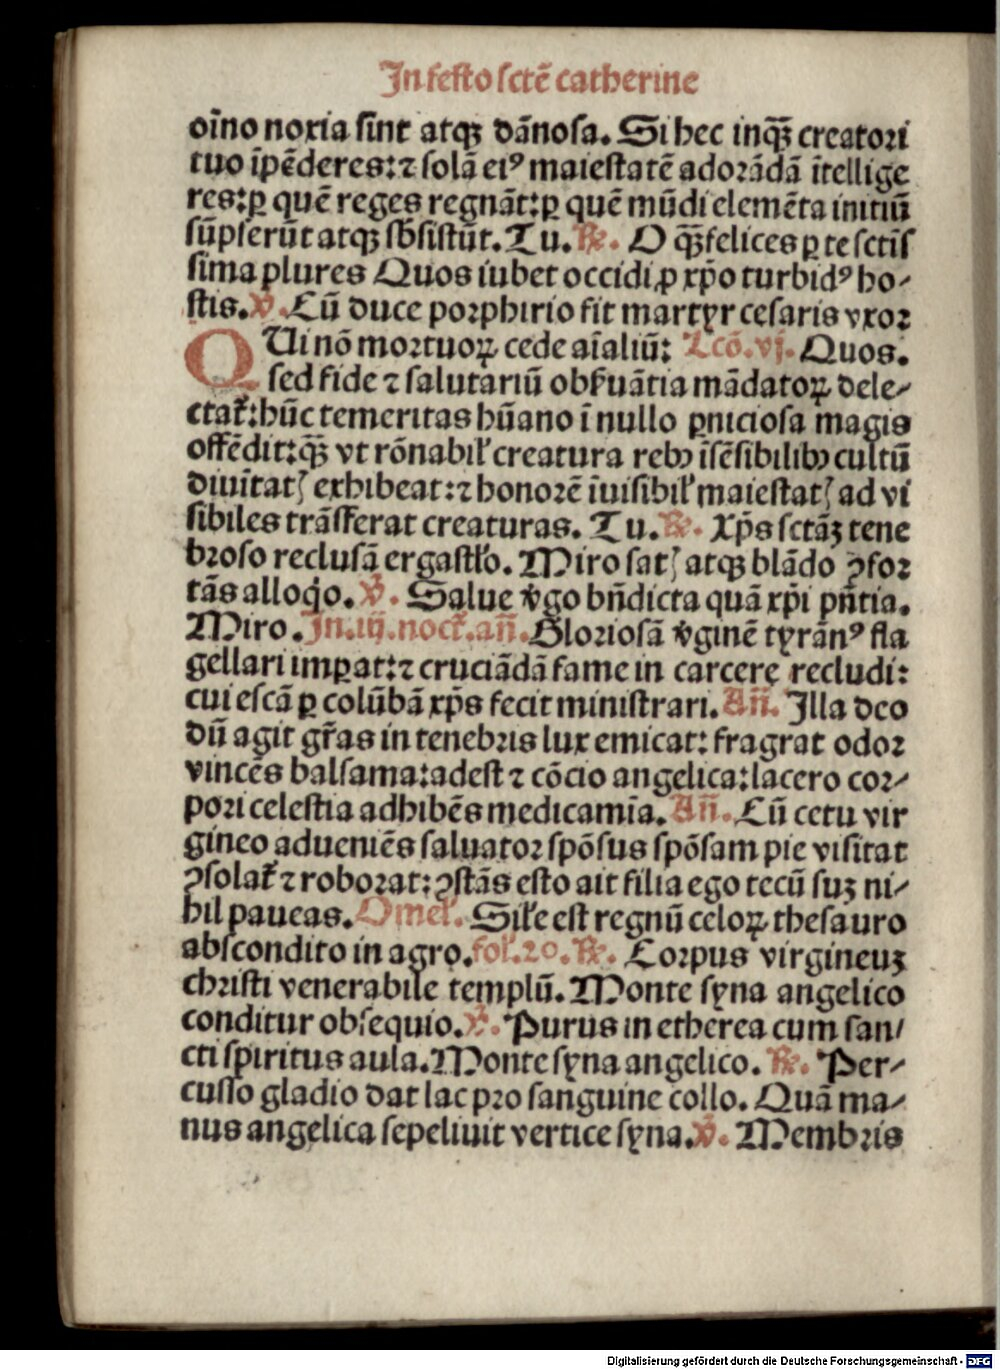 In festo sctē catherine
oīno noxia sint atqꝫ dānosa. Si hec inqꝫ̄ creatori
tuo īpēderes: ⁊ solā eiꝰ maiestatē adorādā ītellige
res: ꝑ quē reges regnāt: ꝑ quē mūdi elemēta initiū
sūpserūt atqꝫ sb̄sistūt. Tu. ℟. O qꝫ̄ felices ꝑ te sctīs
sima plures Quos iubet occidi ꝓ xp̄o turbidꝰ ho-
stis. ℣. Cū duce porphirio fit martyr cesaris vxor
QUi nō mortuoꝝ cede aīaliū: Lcō. vj. Quos.
sed fide ⁊ salutariū obẜuātia mādatoꝝ dele-
ctat̄: hūc temeritas hūano ī nullo ꝑniciosa magis
offēdit: qꝫ̄ vt rōnabil̛ creatura rebꝰ īsēsibilibꝰ cultū
diuītatꝭ exhibeat: ⁊ honorē īuisibil̛ maiestatꝭ ad vi
sibiles trāsferat creaturas. Tu. ℟. Xp̄s sctāꝫ tene
broso reclusā ergastl̛o. Miro satꝭ atqꝫ blādo ꝯfor
tās alloq̇o. ℣. Salue v̄go bn̄dicta quā xp̄i pn̄tia.
Miro. In. iij. noct̄. añ. Gloriosā v̄ginē tyrānꝰ fla
gellari imꝑat: ⁊ cruciādā fame in carcere recludi:
cui escā ꝑ colūbā xp̄s fecit ministrari. Añ. Illa dco
dū agit gr̄as in tenebris lux emicat: fragrat odor
vincēs balsama: adest ⁊ cōcio angelica: lacero cor-
pori celestia adhibēs medicamīa. Añ. Cū cetu vir
gineo adueniēs saluator spōsus spōsam pie visitat
ꝯsolat̄ ⁊ roborat: ꝯstās esto ait filia ego tecū suꝫ ni-
hil paueas. Omel̛. Sil̛e est regnū celoꝝ thesauro
abscondito in agro. fol̛. 20. ℟. Corpus virgineuꝫ
christi venerabile templū. Monte syna angelico
conditur obsequio. ℣. Purus in etherea cum san-
cti spiritus aula. Monte syna angelico. ℟. Per-
cusso gladio dat lac pro sanguine collo. Quā ma-
nus angelica sepeliuit vertice syna. ℣. Membris
Digitalisierung gefördert durch die Deutsche Forschungsgemeinschaft - DFG